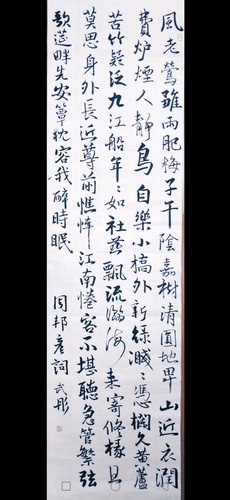 風老鶯雛雨肥梅子午陰嘉樹清圓地卑山近衣潤
費炉煙人靜鳥自樂小橋外新綠濺濺憑欄久黃蘆
苦竹疑泛九江船年々如社燕飄流瀚海来寄修椽且
莫思身外長近尊前憔悴江南倦客不堪聽急管繁弦
歌筵畔先安簟枕容我醉時眠
周邦彥詞